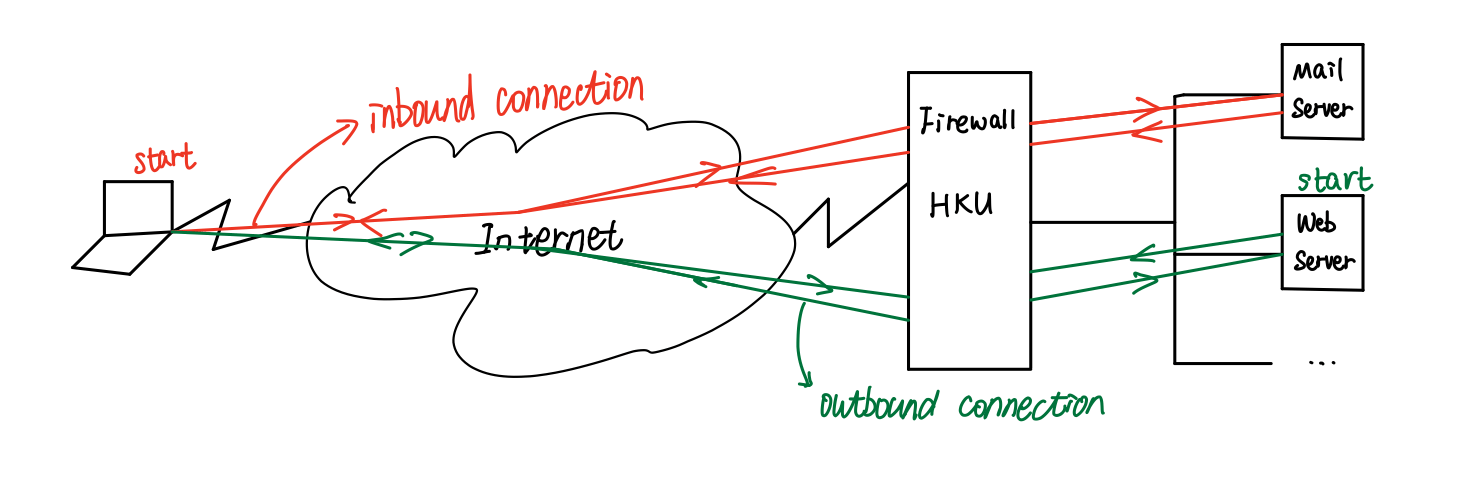 inbound connection
start
Internet
Firewall
HKU
Mail
Server
start
Web
Server
...
outbound connection